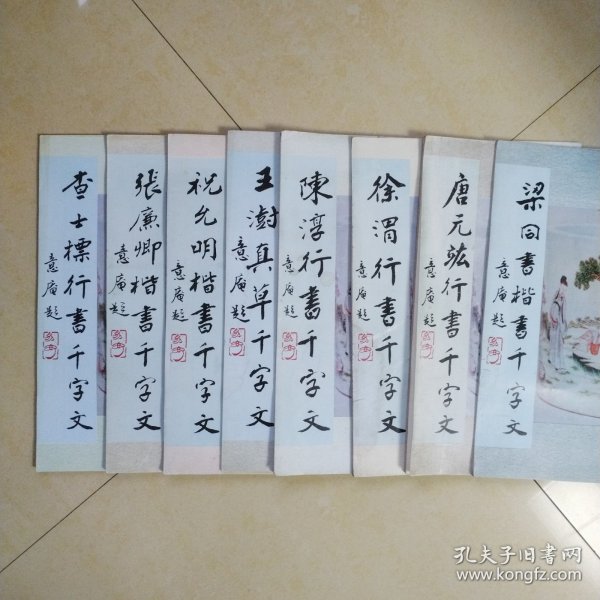 查士標行書千字文
意庵題
張廉卿楷書千字文
意庵題
祝允明楷書千字文
意庵題
王澍真草千字文
意庵題
陳淳行書千字文
意庵題
徐渭行書千字文
意庵題
唐元竑行書千字文
意庵題
梁同書楷書千字文
意庵題
孔夫子旧书网
www.kongfz.com